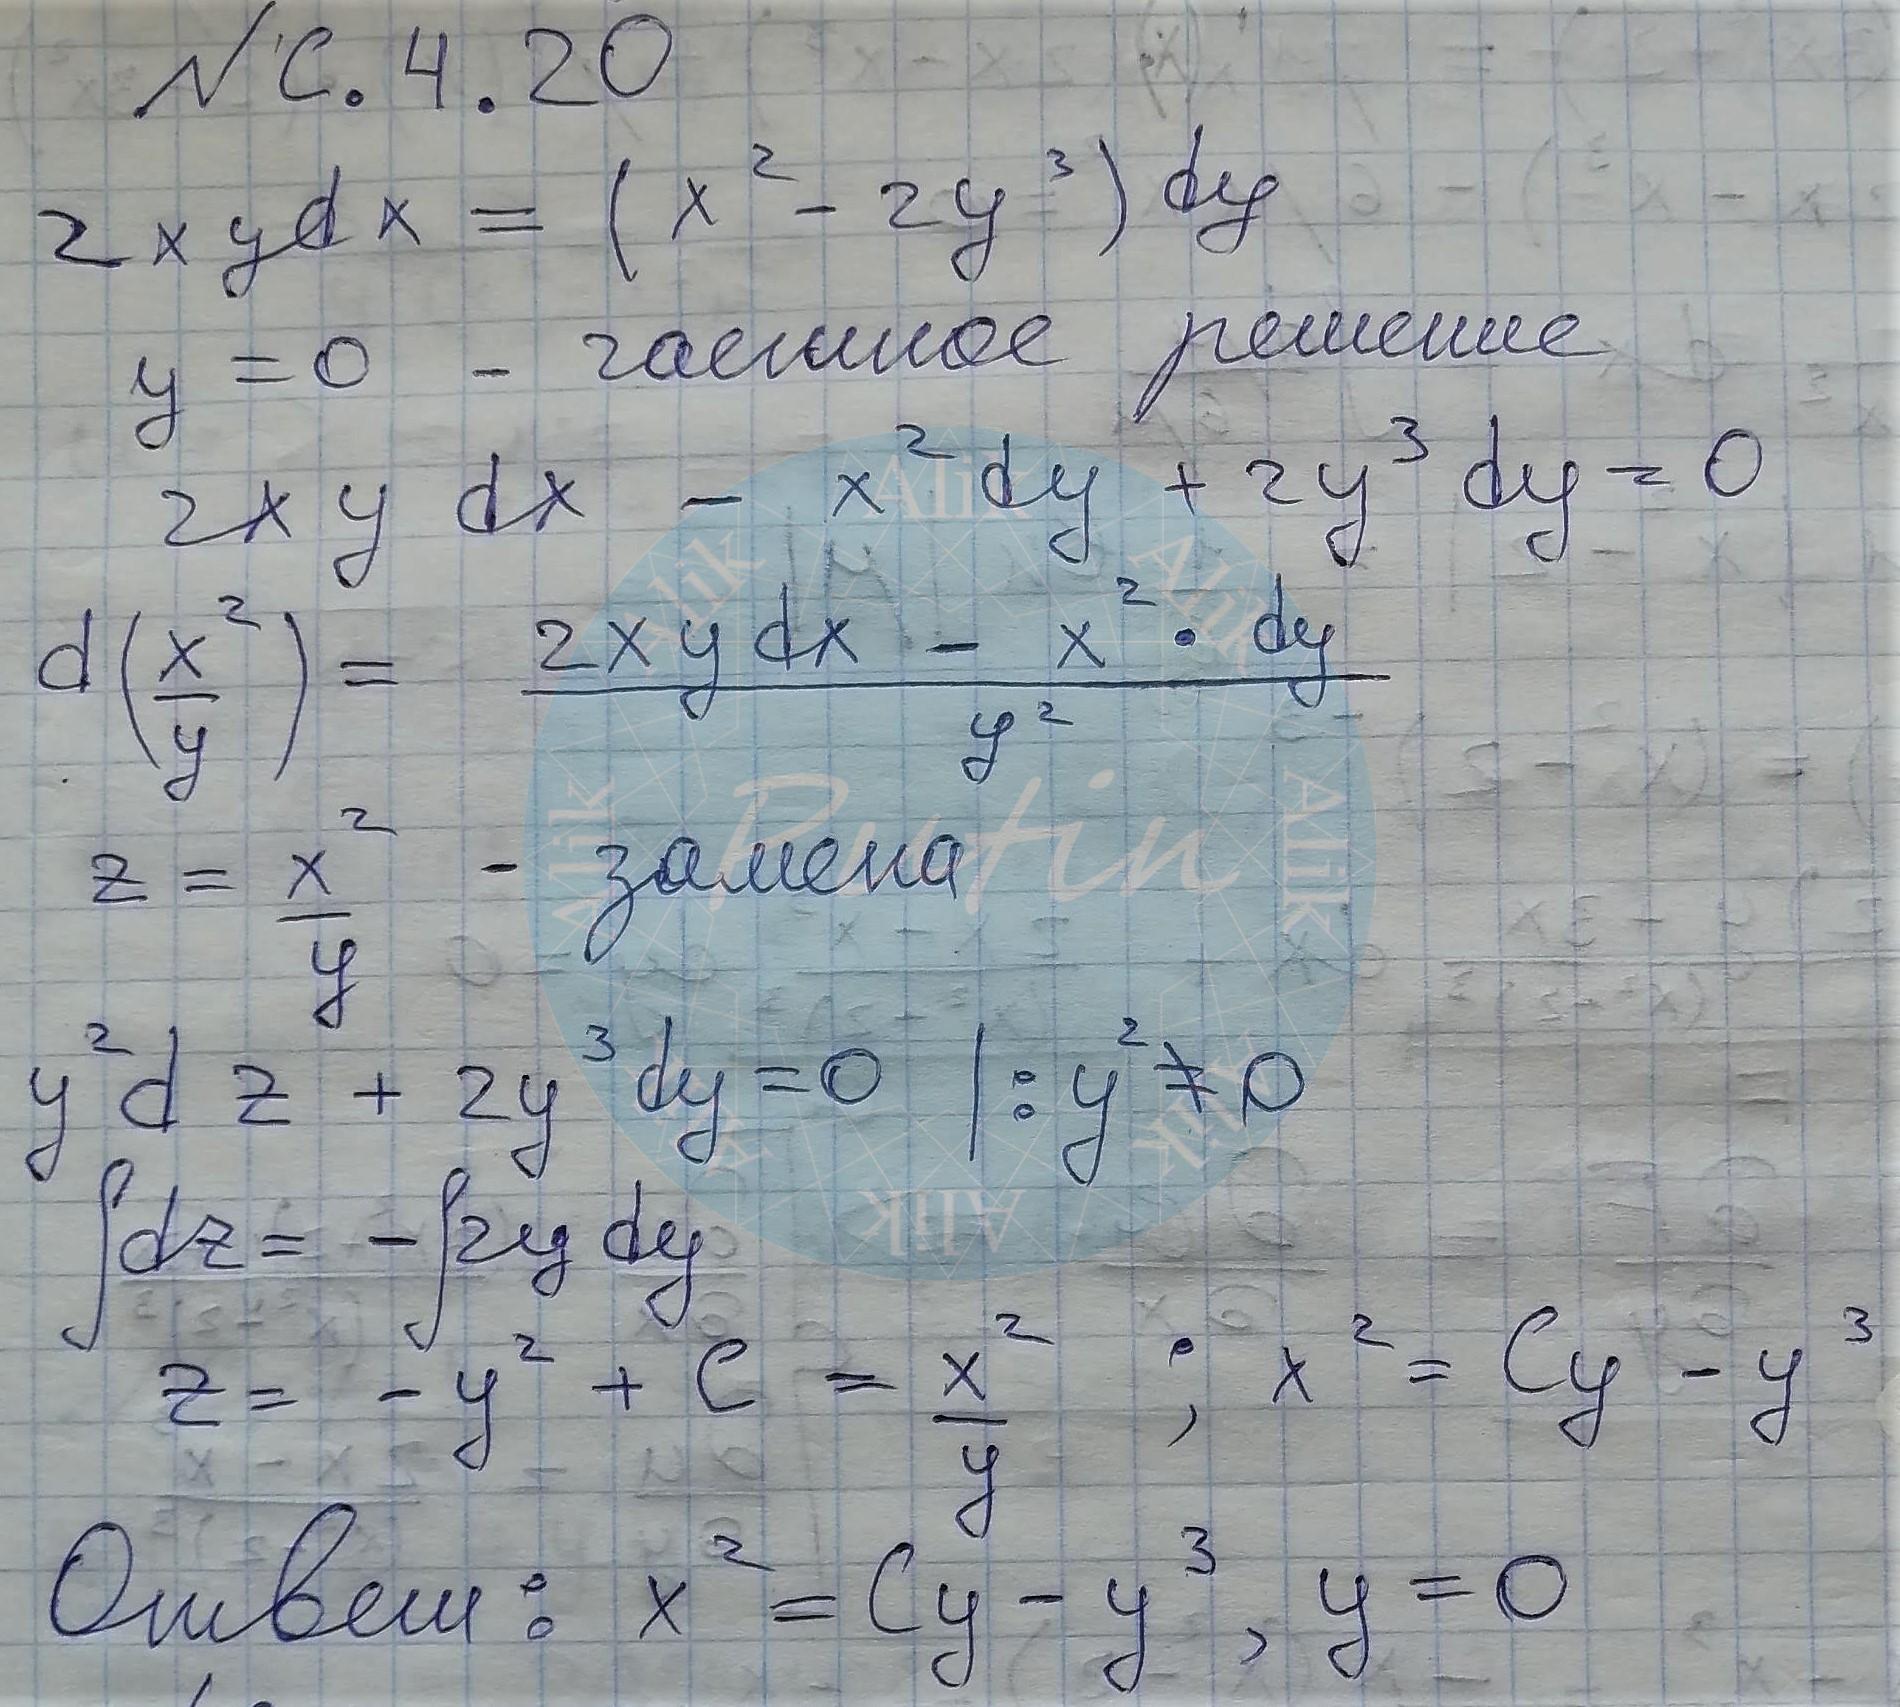 № С.4.20
2xydx = (x² - 2y³)dy
y = 0 - частное решение
2xy dx - x²dy + 2y³dy = 0
d(x²/y) = (2xy dx - x² · dy)/y²
z = x²/y - замена
y²dz + 2y³dy = 0 |: y² ≠ 0
∫dz = -∫2y dy
z = -y² + C = x²/y ; x² = Cy - y³
Ответ: x² = Cy - y³, y = 0
Alik Alik Alik Alik Alik Alik Alik Alik
Putin